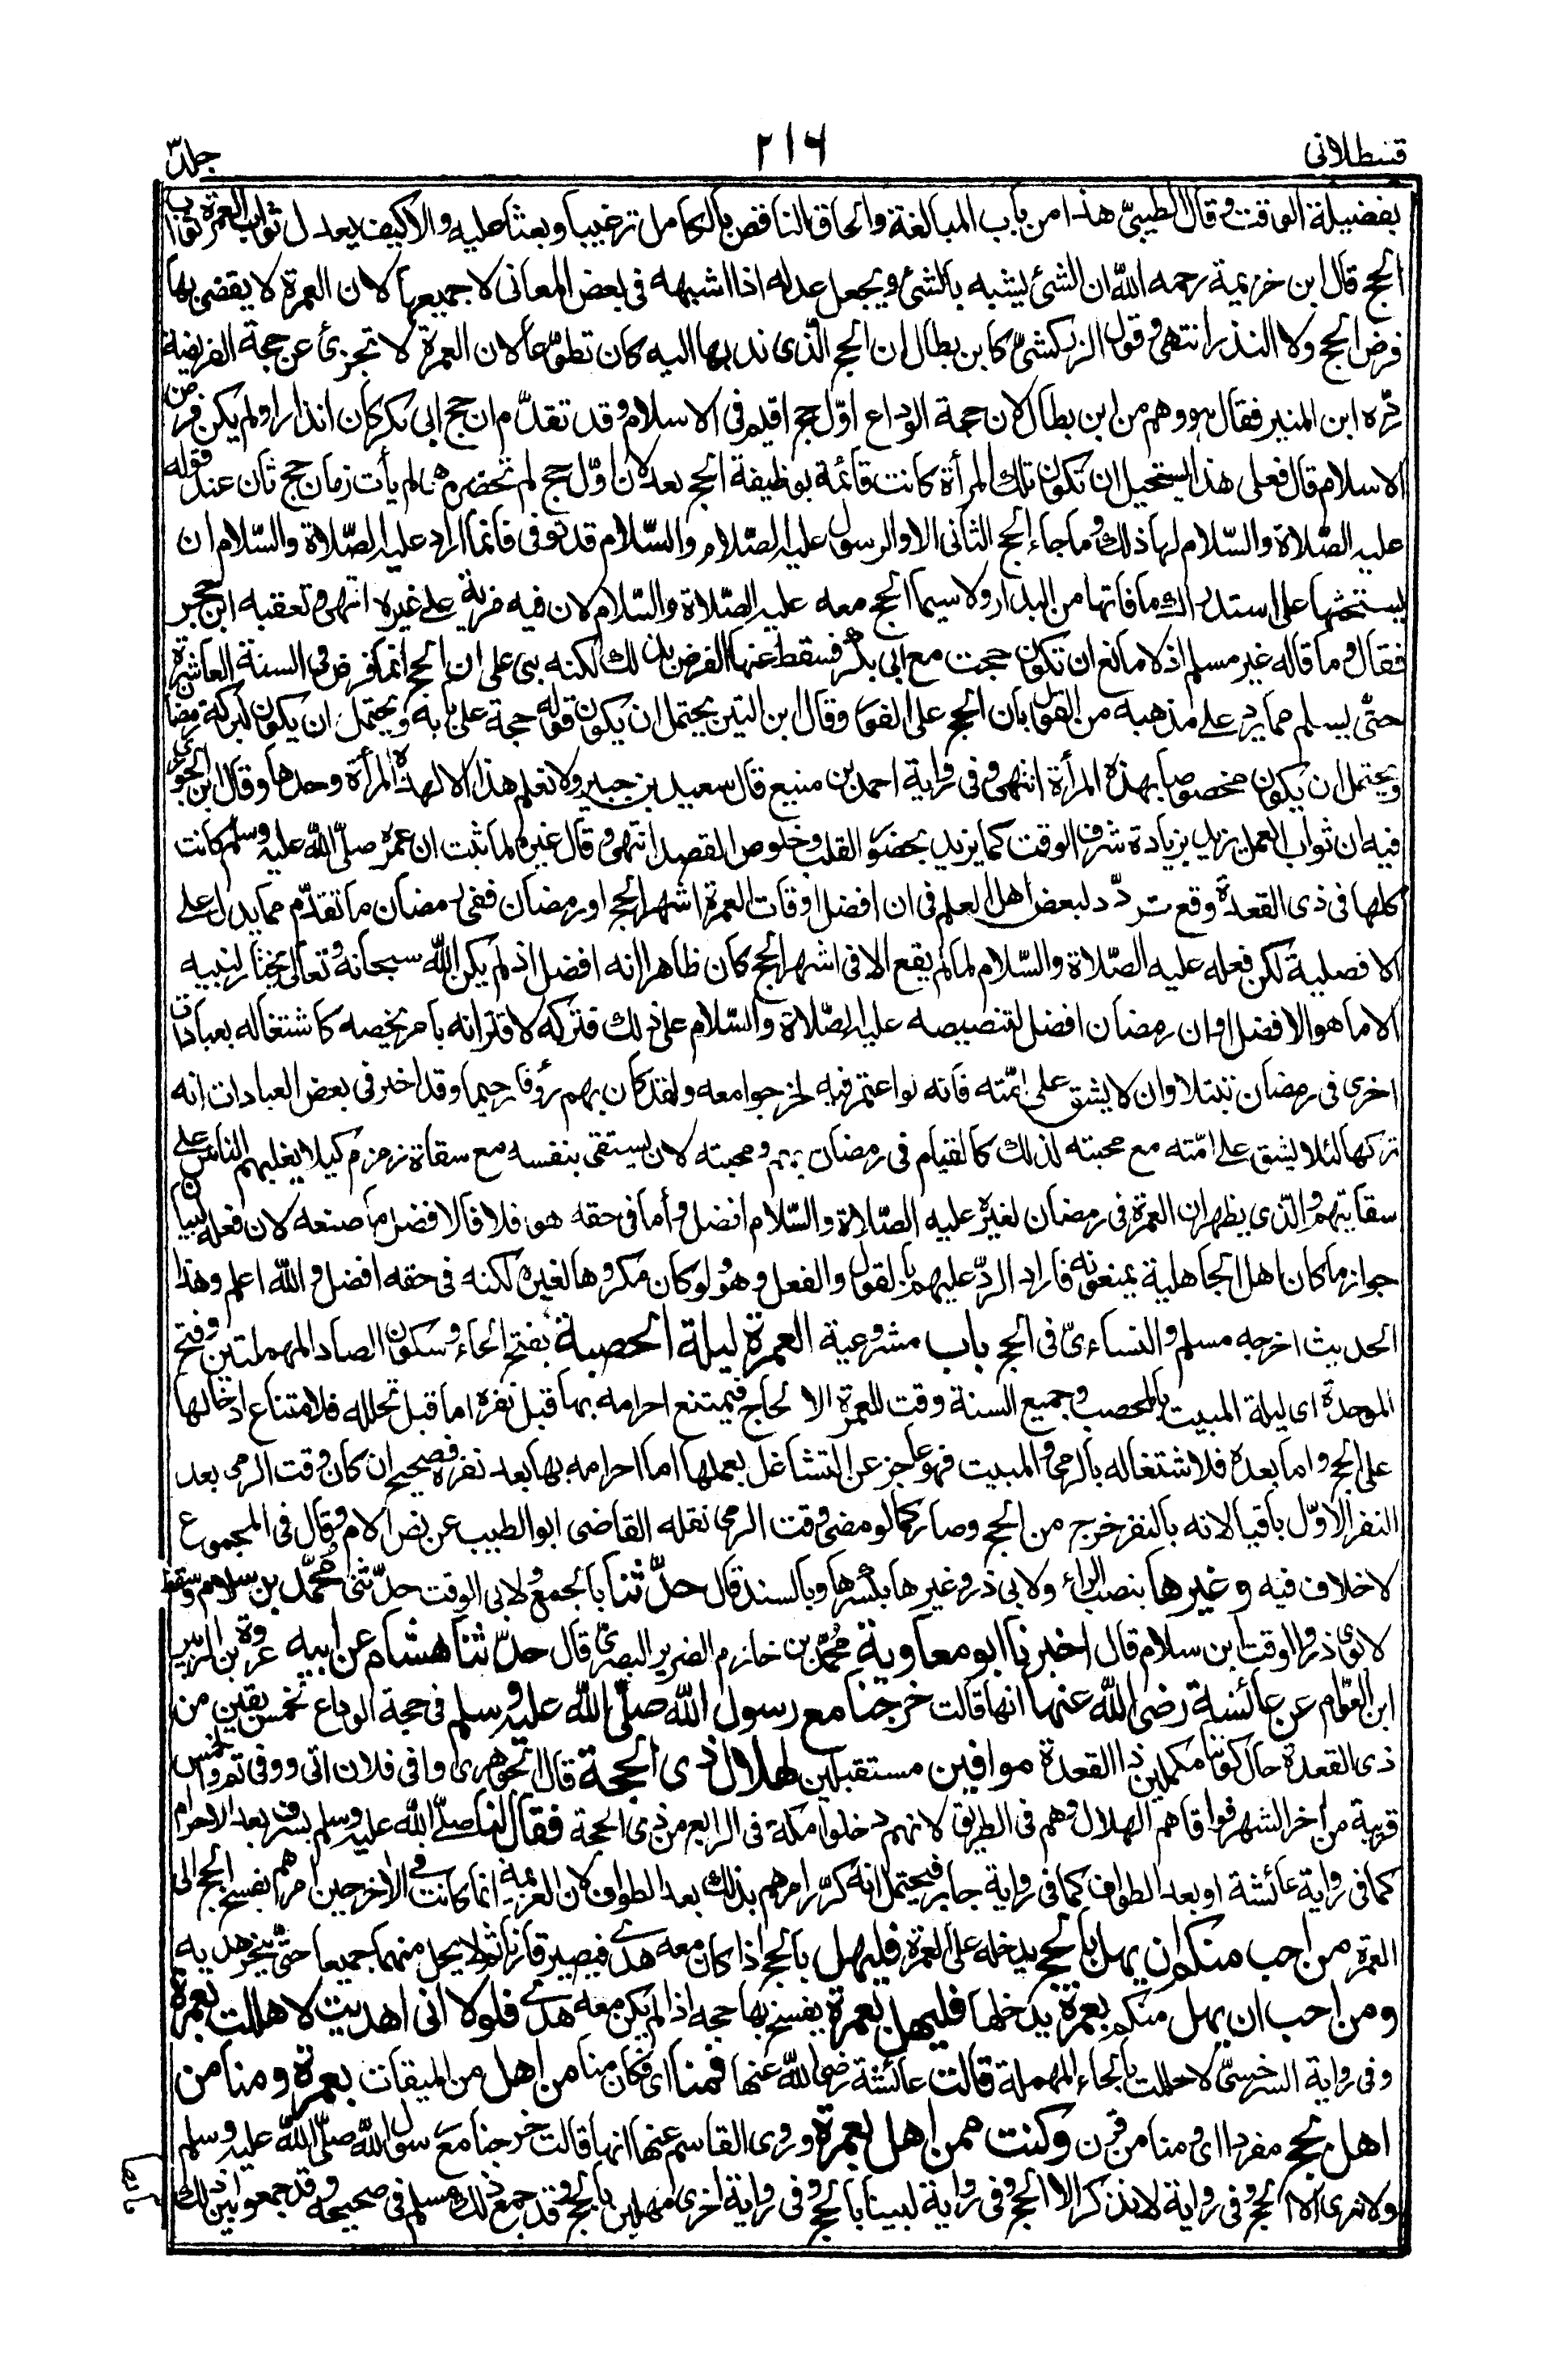 قسطلانی ٢١٦ جلد ٣
بفضيلة الوقت وقال الطيبيّ هذا من باب المبالغة والحاق الناقص بالكامل ترغيبا وبعثا عليه والا كيف يعدل ثواب العمرة ثواب
الحج قال ابن خزيمة رحمه الله ان الشئ يشبه بالشئ ويجعل عدله اذا اشبهه فى بعض المعانى لا جميعها لان العمرة لا يقضى بها
فرض الحج ولا النذر انتهى وقول الزركشىّ كابن بطال ان الحج الّذى ندبها اليه كان تطوّعا لان العمرة لا تجزئ عن حجة الفريضة
ردّه ابن المنير فقال هو وهم من ابن بطال لان حجة الوداع اوّل حج اقيم فى الاسلام وقد تقدّم ان حج ابى بكر كان انذارا ولم يكن فرض
الاسلام قال فعلى هذا يستحيل ان تكون تلك المرأة كانت قائمة بوظيفة الحج بعد لان اوّل حج لم تحضره هى ولم يأت زمان حج ثان عند قوله
عليه الصّلاة والسّلام لها ذلك وما جاء الحج الثانى الا والرسول عليه الصّلاة والسّلام قد توفى فانما اراد عليه الصّلاة والسّلام ان
يستحثها على استدراك ما فاتها من البدار ولا سيما الحج معه عليه الصّلاة والسّلام لان فيه مزية على غيره انتهى وتعقبه ابن حجر
فقال وما قاله غير مسلم اذ لا مانع ان تكون حجت مع ابى بكر فسقط عنها الفرض بذلك لكنه بنى على ان الحج انما فرض فى السنة العاشرة
حتّى يسلم مما يرد على مذهبه من القول بان الحج على الفور وقال ابن التين يحتمل ان يكون قوله حجة على بابه ويحتمل ان يكون لبركة رمضان
ويحتمل ان يكون مخصوصا بهذه المرأة انتهى وفى رواية احمد بن منيع قال سعيد بن جبير ولا نعلم هذا الا لهذه المرأة وحدها وقال ابن الجوزى
فيه ان ثواب العمل يزيد بزيادة شرف الوقت كما يزيد بحضور القلب وخلوص القصد انتهى وقال غيره لما ثبت ان عمره صلّى الله عليه وسلّم كانت
كلها فى ذى القعدة وقع تردّد لبعض اهل العلم فى ان افضل اوقات العمرة اشهر الحج او رمضان ففى رمضان ما تقدّم مما يدل على
الافضلية لكن فعله عليه الصّلاة والسّلام لما لم يقع الا فى اشهر الحج كان ظاهرا انه افضل اذ لم يكن الله سبحانه وتعالى يختار لنبيه
الا ما هو الافضل او ان رمضان افضل لتنصيصه عليه الصّلاة والسّلام على ذلك فتركه لاقترانه بامر يخصه كاشتغاله بعبادات
اخرى فى رمضان تبتلا وان لا يشق على امّته فانه لو اعتمر فيه لخرجوا معه ولقد كان بهم رؤفا رحيما وقد اخبر فى بعض العبادات انه
تركها لئلا يشق على امّته مع محبته لذلك كالقيام فى رمضان بهم ومحبته لان يستقى بنفسه مع سقاة زمزم كيلا يغلبهم الناس على
سقايتهم والّذى يظهر ان العمرة فى رمضان لغيره عليه الصّلاة والسّلام افضل وأما فى حقه هو فلا فالافضل ما صنعه لان فعله لبيان
جواز ما كان اهل الجاهلية يمنعونه فاراد الردّ عليهم بالقول والفعل وهو لو كان مكروها لغيره لكنه فى حقه افضل والله اعلم وهذا
الحديث اخرجه مسلم والنساءىّ فى الحج باب مشروعية العمرة ليلة الحصبة بفتح الحاء وسكون الصاد المهملتين وفتح
الموحدة اى ليلة المبيت بالمحصب وجميع السنة وقت للعمرة الا لحاج فيمتنع احرامه بها قبل نفره اما قبل تحلله فلامتناع ادخالها
على الحج واما بعده فلاشتغاله بالرمى والمبيت فهو عاجز عن التشاغل بعملها اما احرامه بها بعد نفره فصحيح ان كان وقت الرمى بعد
النفر الاوّل باقيا لانه بالنفر خرج من الحج وصار كما لو مضى وقت الرمى نقله القاضى ابو الطيب عن نص الام وقال فى المجموع
لا خلاف فيه وغيرها بنصب الراء ولابى ذر وغيرها بكسرها وبالسند قال حدّثنا بالجمع ولابى الوقت حدّثنى محمّد بن سلام وسقط
لابوى ذر والوقت ابن سلام قال اخبرنا ابو معاوية محمّد بن خازم الضرير البصرىّ قال حدّثنا هشام عن ابيه عروة بن الزبير
ابن العوّام عن عائشة رضى الله عنها انها قالت خرجنا مع رسول الله صلّى الله عليه وسلم فى حجة الوداع لخمس بقين من
ذى القعدة حال كوننا مكملين ذا القعدة موافين مستقبلين لهلال ذى الحجة قال الجوهرى وافى فلان اتى ووفى تم والخمس
قريبة من آخر الشهر فوافاهم الهلال وهم فى الطريق لانهم دخلوا مكة فى الرابع من ذى الحجة فقال لنا صلّى الله عليه وسلم بسرف بعد الاحرام
كما فى رواية عائشة او بعد الطواف كما فى رواية جابر فيحتمل انه كرّر امرهم بذلك بعد الطواف لان العزيمة انما كانت فى الآخر حين امرهم بفسخ الحج الى
العمرة من احب منكم ان يهل بالحج يدخله على العمرة فليهل بالحج اذا كان معه هدى فيصير قارنا ثم لا يحل منهما جميعا حتّى ينحر هديه
ومن احب ان يهل منكم بعمرة يدخلها فليهل بعمرة يفسخ بها حجه اذا لم يكن معه هدى فلولا انى اهديت لاهللت بعمرة
وفى رواية السرخسىّ لاحللت بالحاء المهملة قالت عائشة رضى الله عنها فمنا اى فكان منا من اهل من الميقات بعمرة ومنا من
اهل بحج مفردا اى ومنا من قرن وكنت ممن اهل بعمرة وروى القاسم عنها انها قالت خرجنا مع رسول الله صلّى الله عليه وسلم
ولا نرى الا الحج وفى رواية لا نذكر الا الحج وفى رواية لبينا بالحج وفى رواية اخرى مهلين بالحج وقد جمع ذلك مسلم فى صحيحه وقد جمعوا بين ذلك